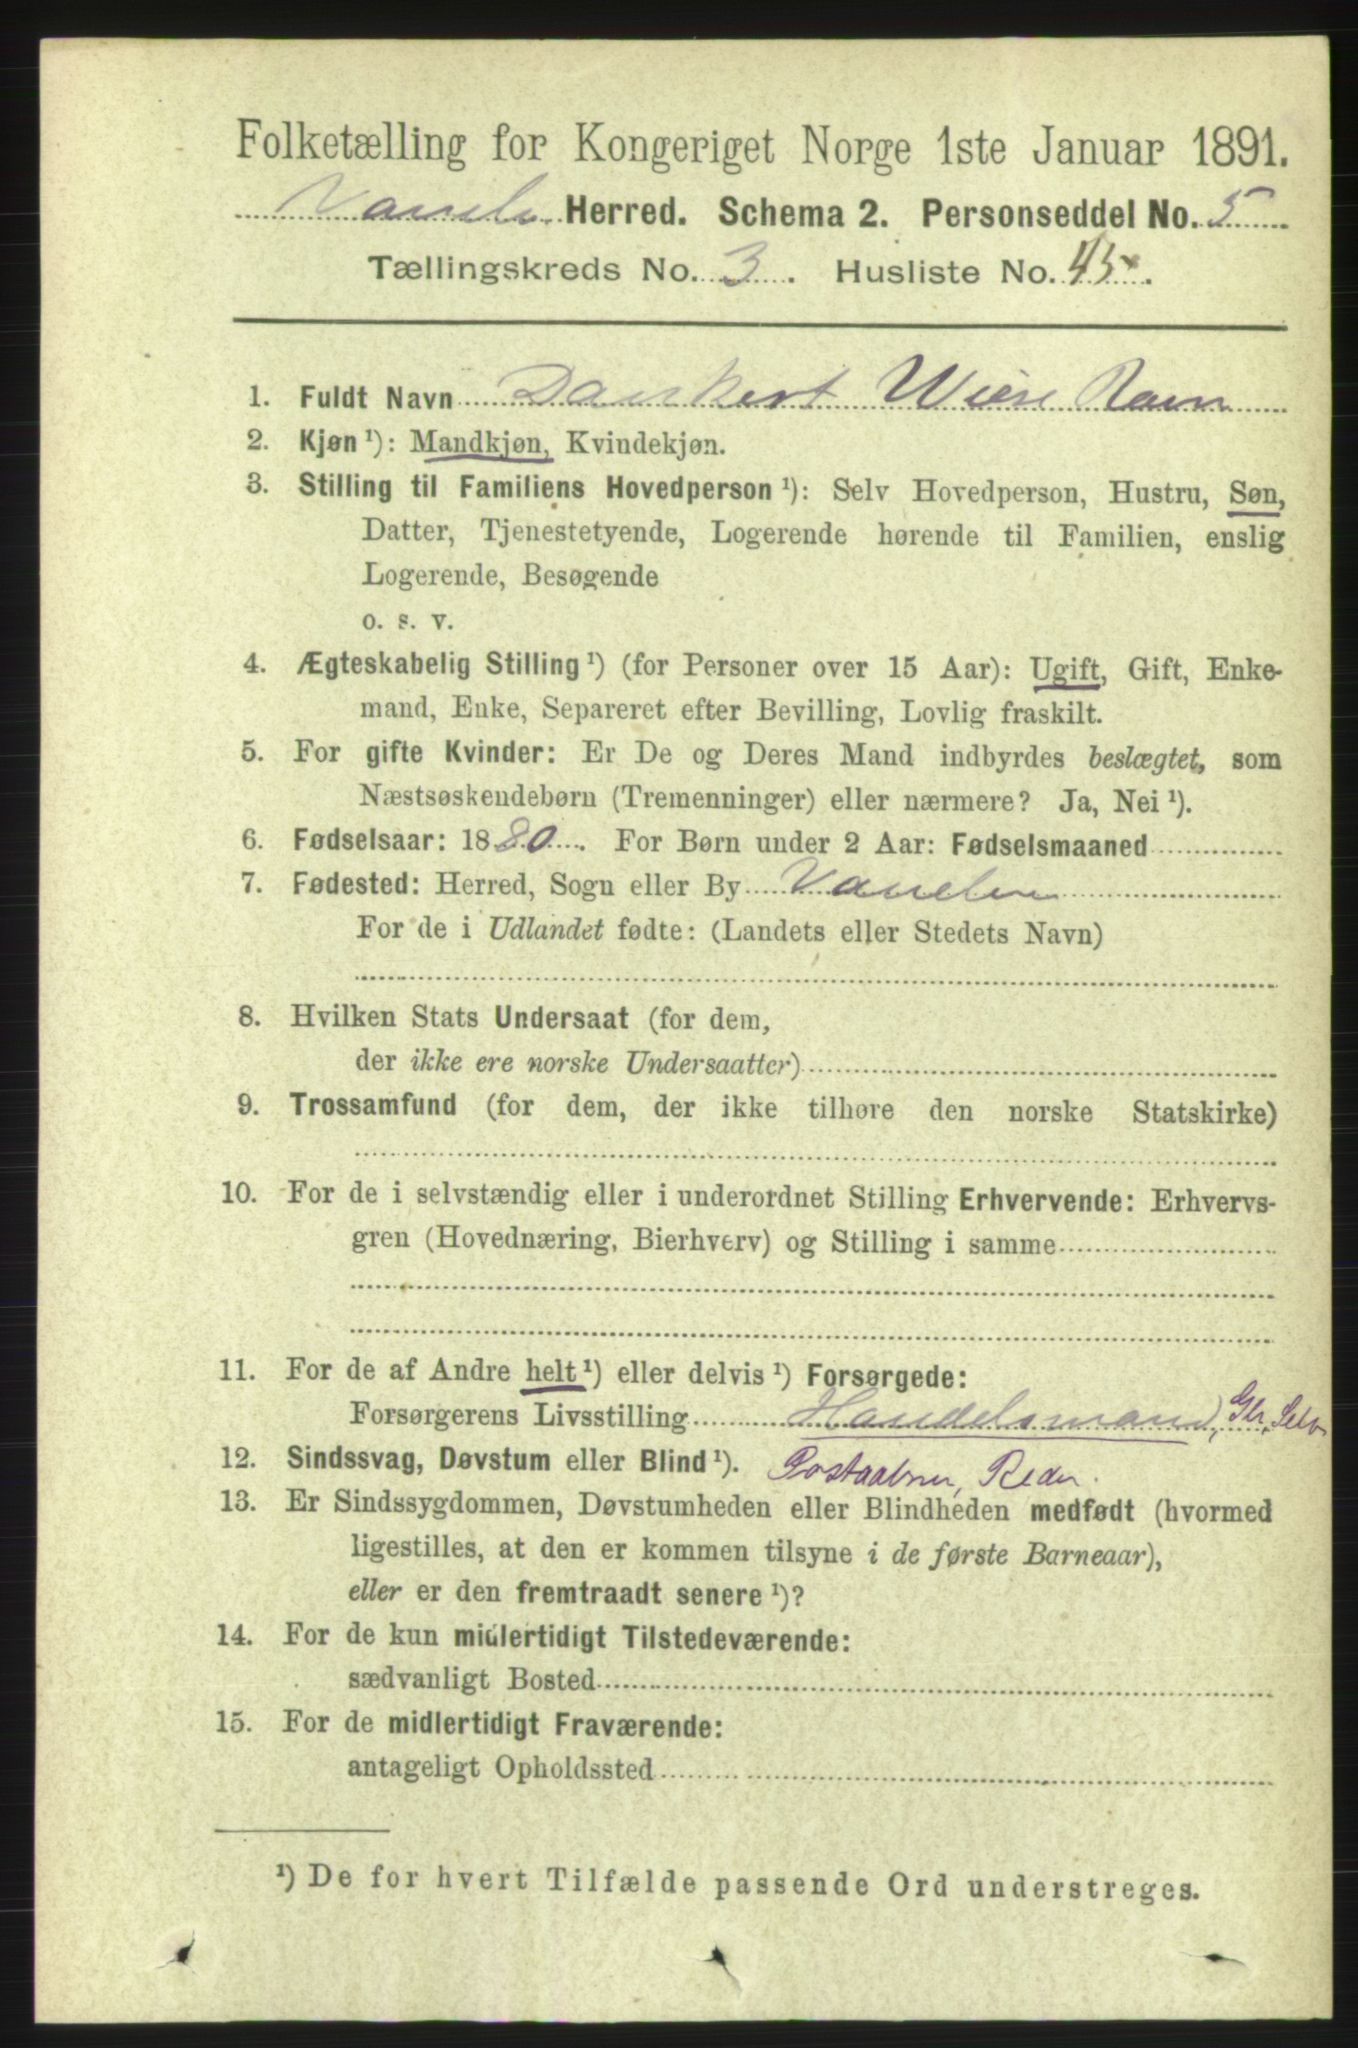 Folketælling for Kongeriget Norge 1ste Januar 1891.
Herred. Schema 2. Personseddel No. 5
Tællingskreds No. 3. Husliste No. 45.
1. Fuldt Navn Dankert Wiese Ravn
2. Kjøn ¹): Mandkjøn, Kvindekjøn.
3. Stilling til Familiens Hovedperson ¹): Selv Hovedperson, Hustru, Søn,
Datter, Tjenestetyende, Logerende hørende til Familien, enslig
Logerende, Besøgende
o. s. v.
4. Ægteskabelig Stilling ¹) (for Personer over 15 Aar): Ugift, Gift, Enke-
mand, Enke, Separeret efter Bevilling, Lovlig fraskilt.
5. For gifte Kvinder: Er De og Deres Mand indbyrdes beslægtet, som
Næstsøskendebørn (Tremenninger) eller nærmere? Ja, Nei ¹).
6. Fødselsaar: 1880. For Børn under 2 Aar: Fødselsmaaned
7. Fødested: Herred, Sogn eller By
For de i Udlandet fødte: (Landets eller Stedets Navn)
8. Hvilken Stats Undersaat (for dem,
der ikke ere norske Undersaatter)
9. Trossamfund (for dem, der ikke tilhøre den norske Statskirke)
10. For de i selvstændig eller i underordnet Stilling Erhvervende: Erhvervs-
gren (Hovednæring, Bierhverv) og Stilling i samme
11. For de af Andre helt ¹) eller delvis ¹) Forsørgede:
Forsørgerens Livsstilling Handelsmand, Gbr, Selv
12. Sindssvag, Døvstum eller Blind ¹). Postaabner, Reder.
13. Er Sindssygdommen, Døvstumheden eller Blindheden medfødt (hvormed
ligestilles, at den er kommen tilsyne i de første Barneaar),
eller er den fremtraadt senere ¹)?
14. For de kun midlertidigt Tilstedeværende:
sædvanligt Bosted
15. For de midlertidigt Fraværende:
antageligt Opholdssted
¹) De for hvert Tilfælde passende Ord understreges.